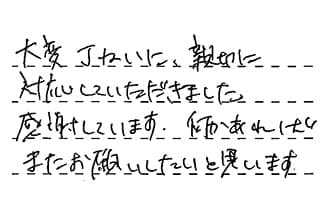 大変丁ねいに、親切に
対応していただきました。
感謝しています。何かあれば
またお願いしたいと思います